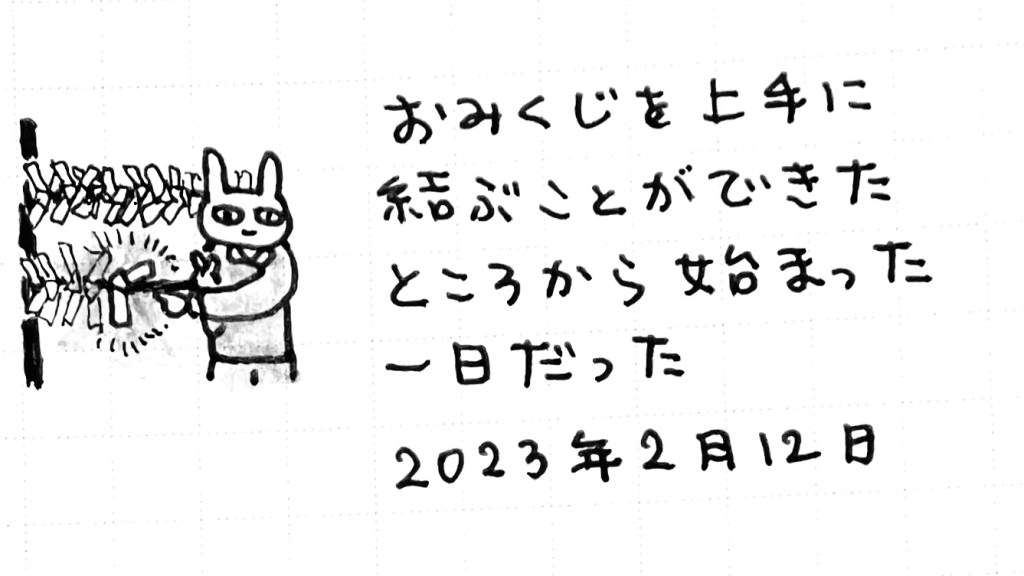 おみくじを上手に
結ぶことができた
ところから始まった
一日だった
2023年2月12日